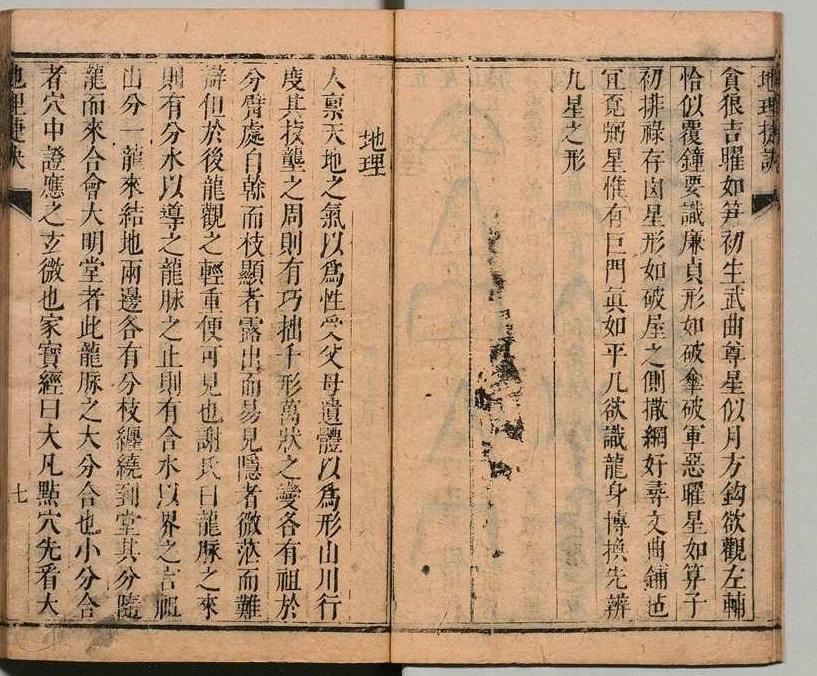 地理捷訣
貪狼吉曜如笋初生武曲尊星似月方鈎欲觀左輔
恰似覆鐘要識廉貞形如破傘破軍惡曜星如算子
初排祿存凶星形如破屋之側撒網好尋文曲鋪毡
宜覓弼星惟有巨門眞如平几欲識龍身博換先辨
九星之形
地理
人禀天地之氣以爲性受父母遺體以爲形山川行
度其枝壟之周則有巧拙千形萬狀之變各有祖於
分臂處自榦而枝顯者露出而易見隱者微茫而難
辯但於後龍觀之輕重便可見也謝氏曰龍脉之來
則有分水以導之龍脉之止則有合水以界之言祖
山分一龍來結地兩邊各有分枝纏繞到堂其分隨
龍而來合會大明堂者此龍脉之大分合也小分合
者穴中證應之玄微也家寶經曰大凡點穴先看大
地理捷訣
七